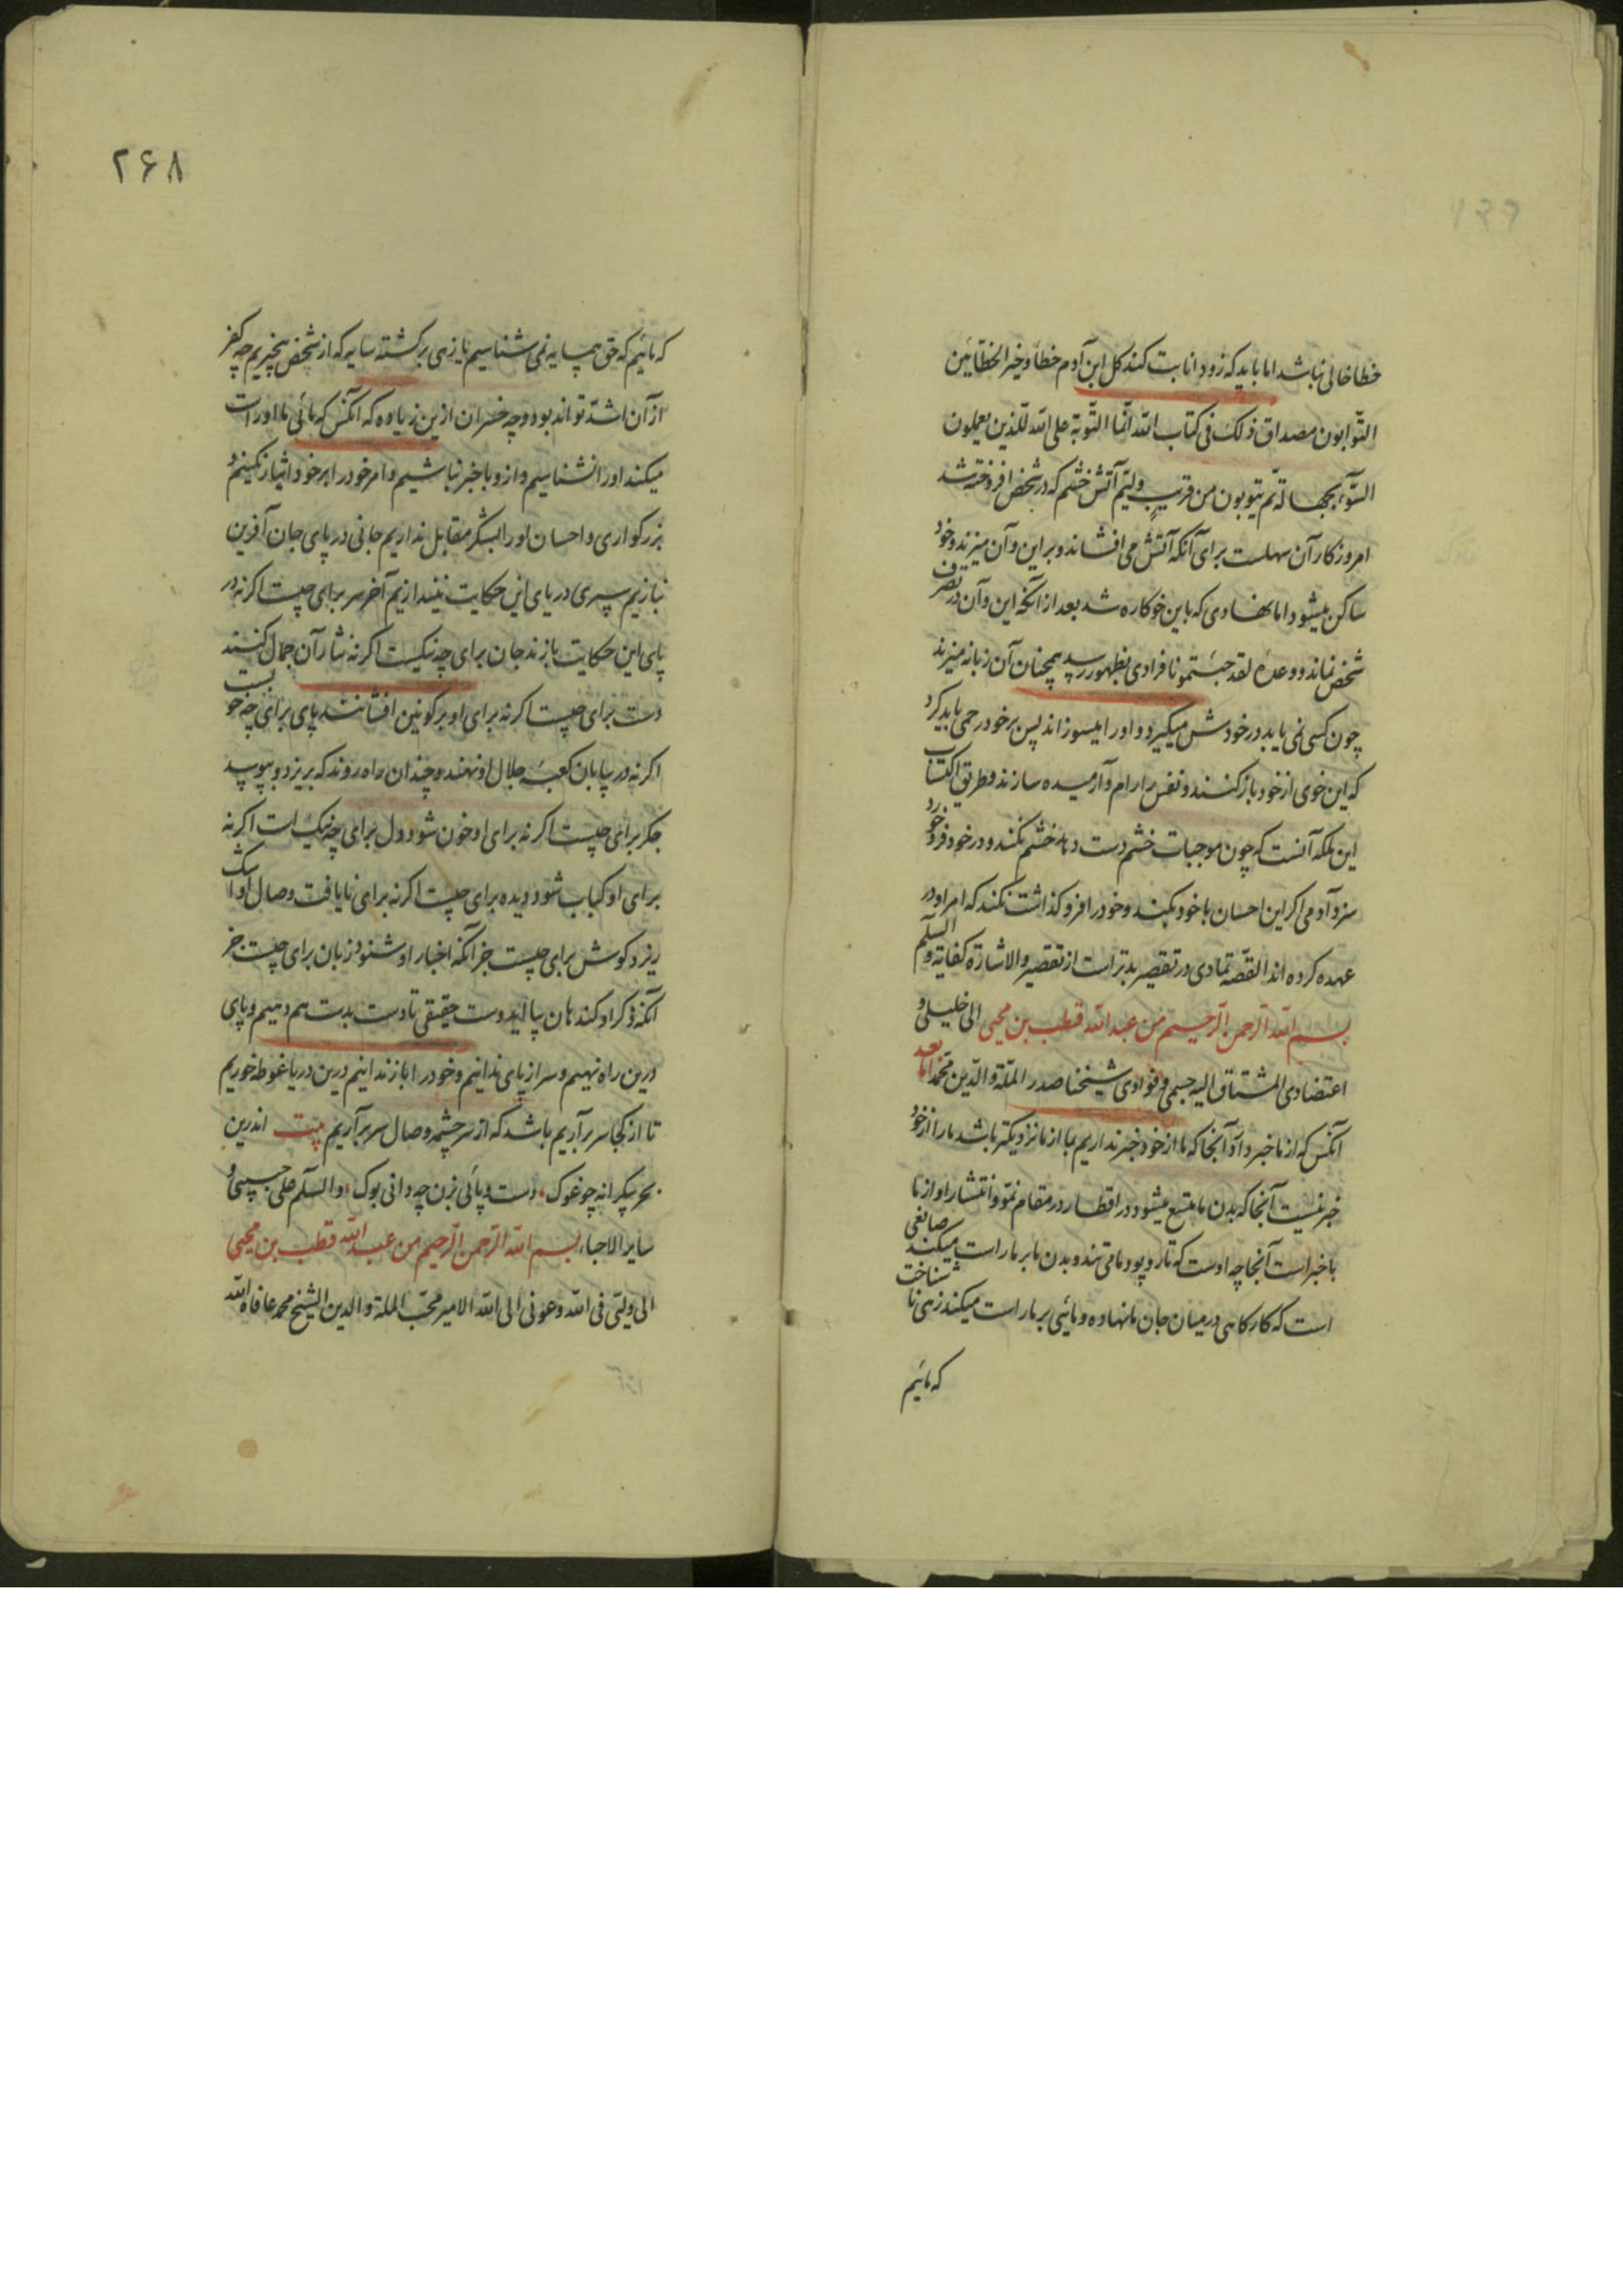 خطا خالی نباشد اما باید که زود انابت کند کل ابن آدم خطاء وخیر الخطائین
التوابون مصداق ذلک فی کتاب الله انما التوبة علی الله للذین یعملون
السوء بجهالة ثم یتوبون من قریب ولیتم آتش خشم که در شخص افروخته شد
امروز کار آن سهلست برای آنکه آتش می افشاند و بر این و آن میزند و خود
ساکن میشود اما نهادی که باین خو کاره شد بعد از آنکه این و آن در تصرف
شخص نماند و وعده لقد جئتمونا فرادی بظهور رسد همچنان آن زبانه میزند
چون کسی نمی یابد در خودش میگیرد و او را میسوزاند پس بر خود رحمی باید کرد
که این خوی از خود باز کنند و نفس را رام و آرمیده سازند و طریق اکتساب
این ملکه آنست که چون موجبات خشم دست دهد خشم نکند و در خود فرو خورد
سزد آدمی اگر این احسان با خود بکند و خود را فرو گذاشت نکند که امر او در
عهده کرده اند القصه تمادی در تقصیر بدتر است از تقصیر والاشارة کفایة والسلم
بسم الله الرحمن الرحیم من عبد الله قطب بن محیی الی خلیلی و
اعتضادی المشتاق الیه جسمی و فوادی شیخنا صدر الملة والدین محمد اما بعد
آنکس که از ما خبر دارد آنجا که ما از خود خبر نداریم بما از ما نزدیکتر باشد ما را از خود
خبر نیست آنجا که بدن ما متسع میشود و در اقطار در مقام نمو و انتشار او از ما
با خبر است آنجا چه اوست که تار و پود ما می تند و بدن ما بر ما راست میکند صانعی
است که کارگاهی در میان جان ما نهاده و مائی بر ما راست میکند زهی نا شناخت
که مائیم
۲۶۸
که مائیم که حق همسایه نمی شناسیم یا زهی برگشته سایه که از شخص بیخبریم چه کفر
از آن اشد تواند بود و چه خسران ازین زیاده که آنکس که مائی ما او راست
میکند او را نشناسیم و از و با خبر نباشیم و امر خود را بر خود ایثار نکنیم و
بزرگواری و احسان او را بشکر مقابل نداریم جانی در پای جان آفرین
نبازیم سری در پای این حکایت نیندازیم آخر سر برای چیست اگر نه در
پای این حکایت بازند جان برای چه نیکیست اگر نه نثار آن جمال کنند
دست برای چیست اگر نه برای او بر کونین افشانند پای برای چه خوبست
اگر نه در بیابان کعبه جلال او نهند و چندان راه روند که بریزد و بپوسد
جگر برای چیست اگر نه برای او خون شود دل برای چه نیک است اگر نه
برای او کباب شود دیده برای چیست اگر نه برای نایافت وصال او اشک
ریزد گوش برای چیست جز آنکه اخبار او شنود زبان برای چیست جز
آنکه ذکر او کند هان بیا ای دوست حقیقی تا دست بدست هم دهیم و پای
درین راه نهیم و سر از پای ندانیم و خود را باز ندانیم درین دریا غوطه خوریم
تا از کجا سر برآریم باشد که از سر چشمه وصال سر برآریم بیت اندرین
بحر بیکرانه چو غوک دست و پائی بزن چه دانی بوک والسلم علی حبیبی و
سایر الاحباء بسم الله الرحمن الرحیم من عبد الله قطب بن محیی
الی ولیی فی الله وعونی الی الله الامیر محب الملة والدین الشیخ محمد عافاه الله